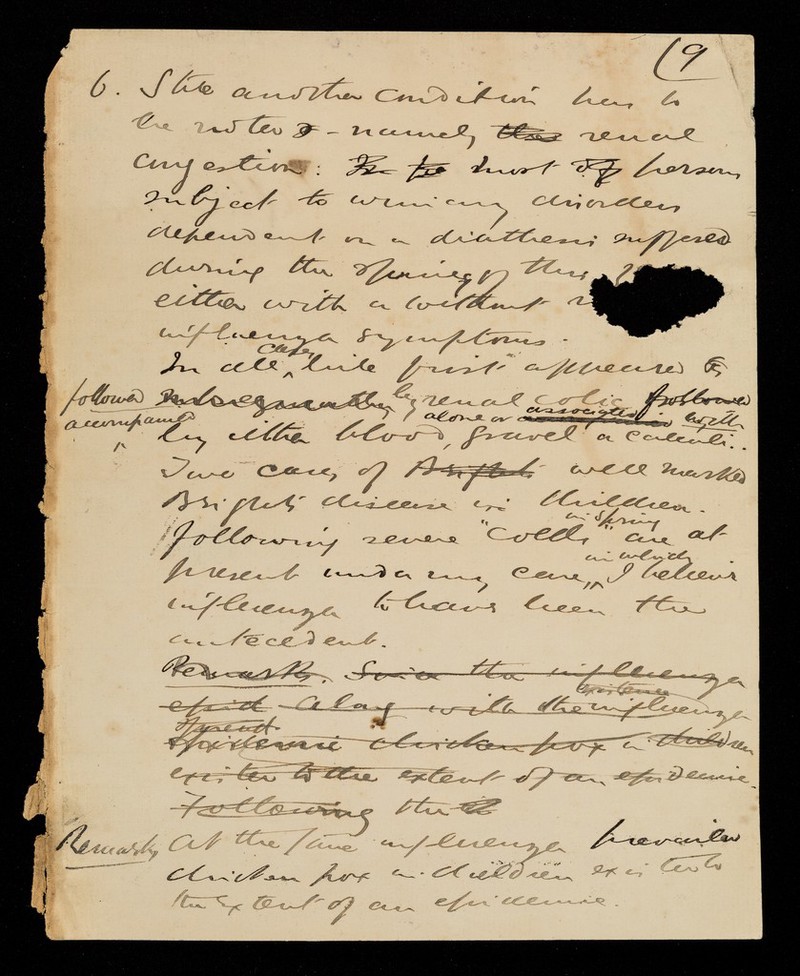 (9
6. Still another condition has to
be noted - namely renal
congestion: most persons
subject to urinary disorders
dependent on a diathesis suffered
during the Spring of this
either with or without
influenza symptoms.
In all cases, bile first appeared
followed by renal colic
accompanied alone or associated with
by either blood, gravel or calculi.
Two cases of well marked
Brights disease in children
following severe "Colds" in Spring are at
present under my care, in which I believe
influenza to have been the
antecedent.
Remarks. Since the influenza
epid along with the influenza
existence
epidemic chicken pox in children
existed to the extent of an epidemic.
Following the
Remarks At the same influenza prevailed
chicken pox in children existed to
the extent of an epidemic.